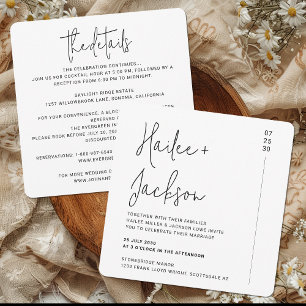 the details
THE CELEBRATION CONTINUES...
JOIN US FOR COCKTAIL HOUR AT 5:00 PM, FOLLOWED BY A
RECEPTION FROM 6:00 PM TO MIDNIGHT.
SKYLIGHT RIDGE ESTATE
1257 WILLOWBROOK LANE, SONOMA, CALIFORNIA
FOR YOUR CONVENIENCE, A BLOC
THE EVERGREEN IN
PLEASE BOOK BEFORE JULY 10, 20
DISCOUNTED
RESERVATIONS: 1-888-987-6543
WWW.EVERGR
FOR MORE WEDDING D
WWW.JOINHAI
Hailee +
Jackson
07
25
30
TOGETHER WITH THEIR FAMILIES
HAILEE MILLER & JACKSON LOWE INVITE
YOU TO CELEBRATE THEIR MARRIAGE
25 JULY 2030
AT 3 O'CLOCK IN THE AFTERNOON
STONEBRIDGE MANOR
12703 FRANK LLOYD WRIGHT, SCOTTSDALE AZ